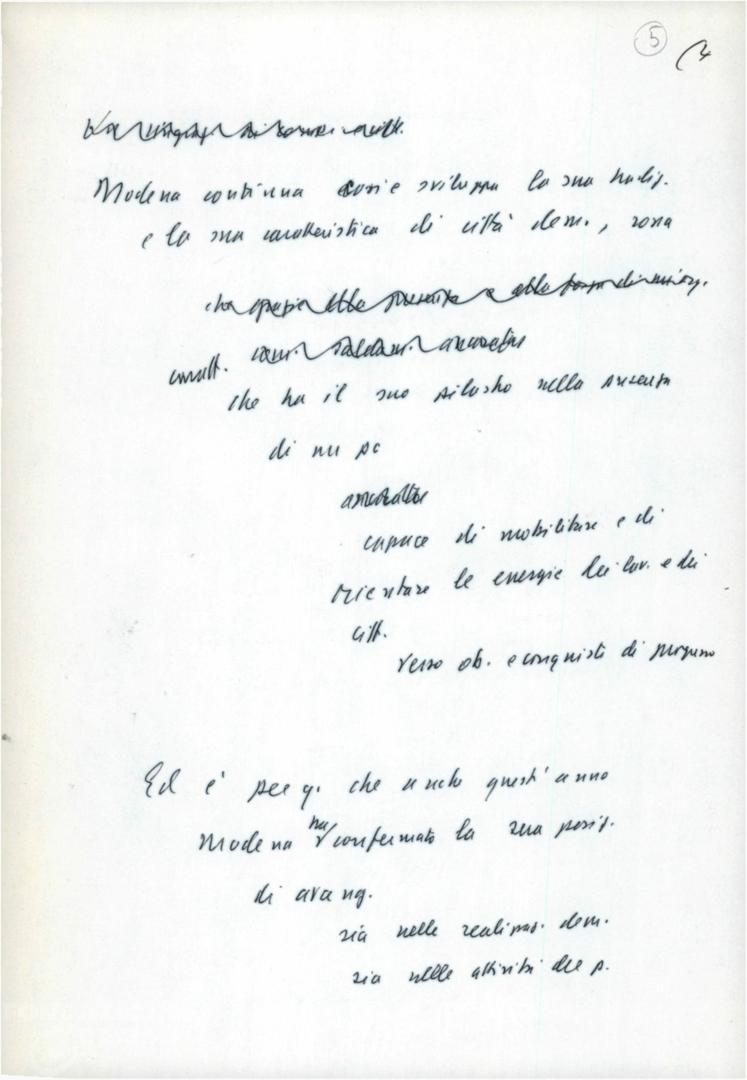 5 (4
Modena continua così e sviluppa la sua tradiz.
e la sua caratteristica di città dem., rossa
che
che ha il suo pilastro nella presenza
di un pc
capace di mobilitare e di
orientare le energie dei lav. e dei
citt.
verso ob. e conquiste di progresso
Ed è per q. che anche quest'anno
Modena ha confermato la sua posiz.
di avang.
sia nelle realizzaz. dem.
sia nelle attività del p.